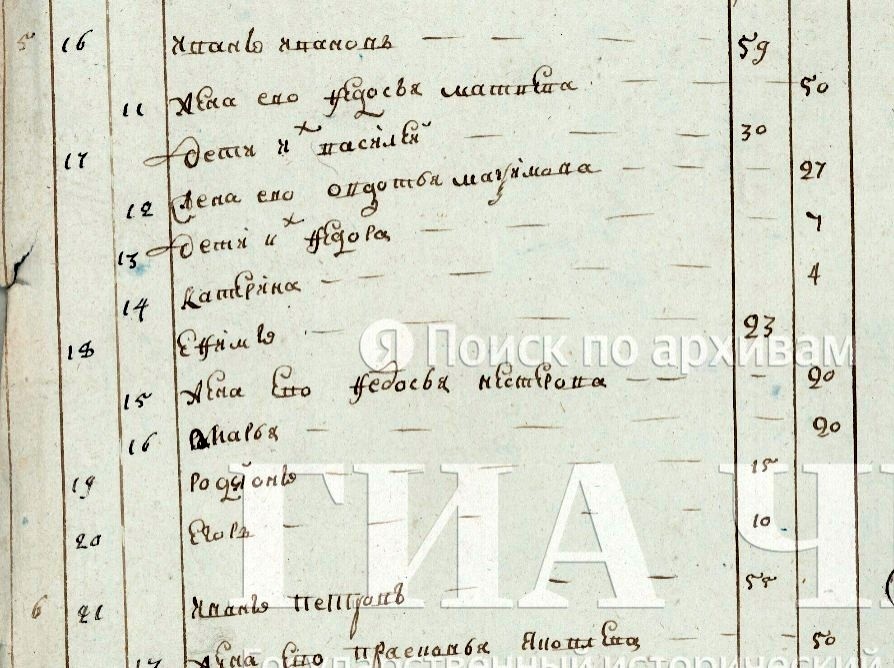 5 16 Иванъ Ивановъ — — — 59
11 Жена ево Федосья матвева — — 50
17 Дети их василей — — — 30
12 Жена ево овдотья макимова — — 27
13 Дети их Федора — — — 7
14 катерина — — — 4
18 Ефимъ — — — 23
Я Поиск по архивам
15 Жена Ево Федосья нестерова — — 20
16 марья — — — 20
19 родионъ — — — 15
20 Егоръ — — — 10
ГИА Ч
6 21 Иванъ петровъ — — — 55
17 Жена Ево прасковья Яковлева — — 50
Государственный исторический